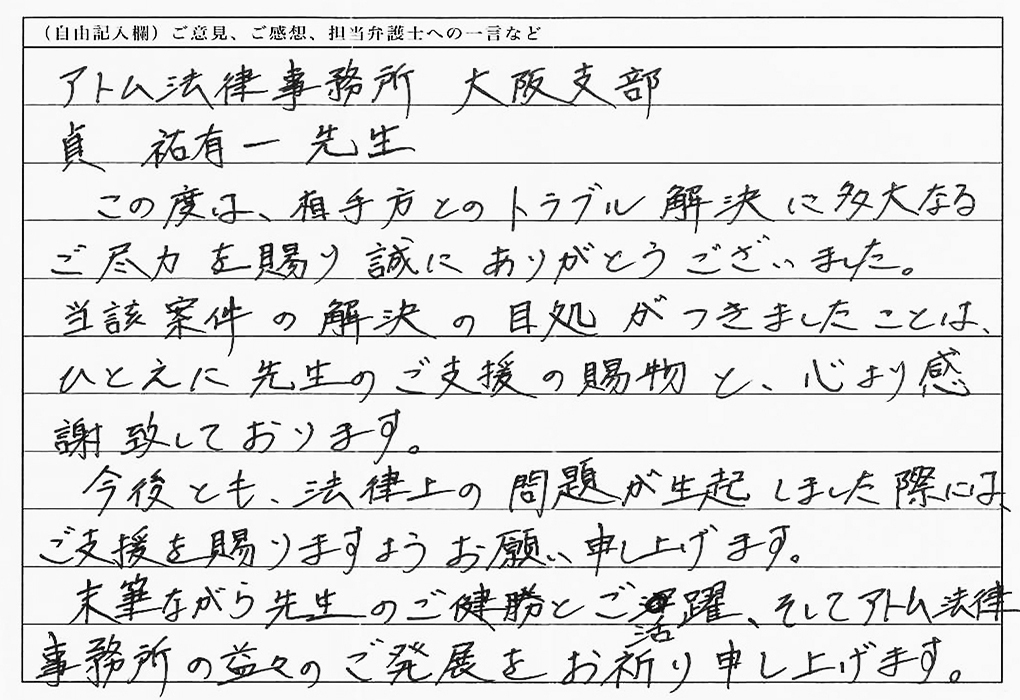 （自由記入欄）ご意見、ご感想、担当弁護士への一言など
アトム法律事務所 大阪支部
貞 祐有一 先生
この度は、相手方とのトラブル解決に多大なる
ご尽力を賜り誠にありがとうございました。
当該案件の解決の目処がつきましたことは、
ひとえに先生のご支援の賜物と、心より感
謝致しております。
今後とも、法律上の問題が生起しました際には、
ご支援を賜りますようお願い申し上げます。
末筆ながら先生のご健勝とご活躍、そしてアトム法律
事務所の益々のご発展をお祈り申し上げます。